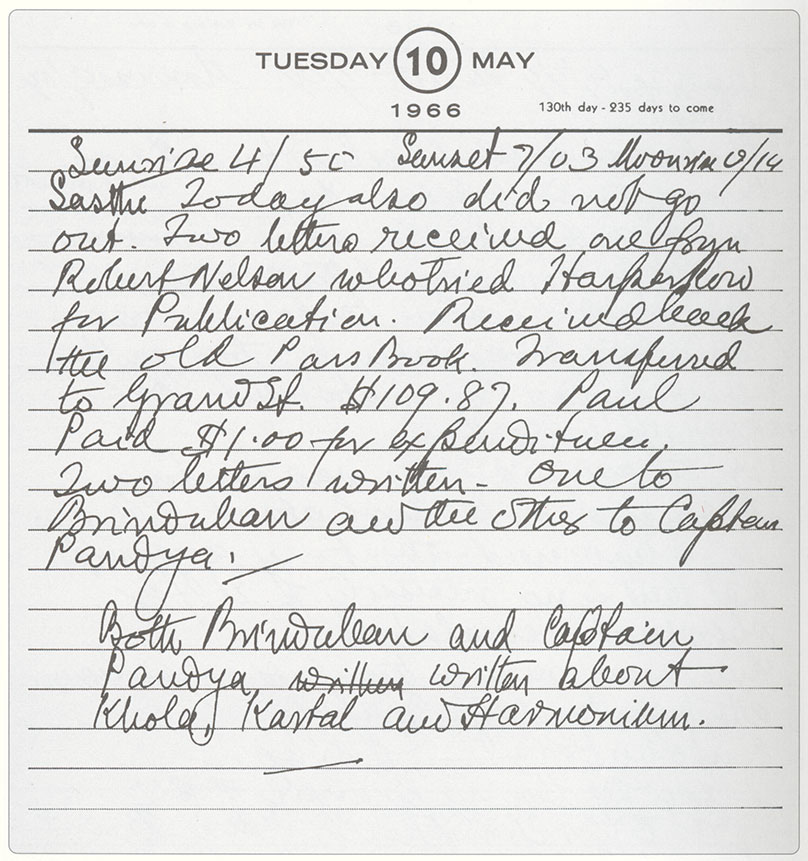 TUESDAY 10 MAY
1966
130th day - 235 days to come
Sunrise 4/50 Sunset 7/03 Moonrise
Sasthi Today also did not go
out. Two letters received one from
Robert Nelson who tried Harper Row
for Publication. Received back
the old Pass Book. Transferred
to Grand St. $109.87. Paul
Paid $1.00 for expenditure.
Two letters written - One to
Brindaban and the other to Captain
Pandya.
Both Brindaban and Captain
Pandya written written about
Khola, Kartal and Harmonium.